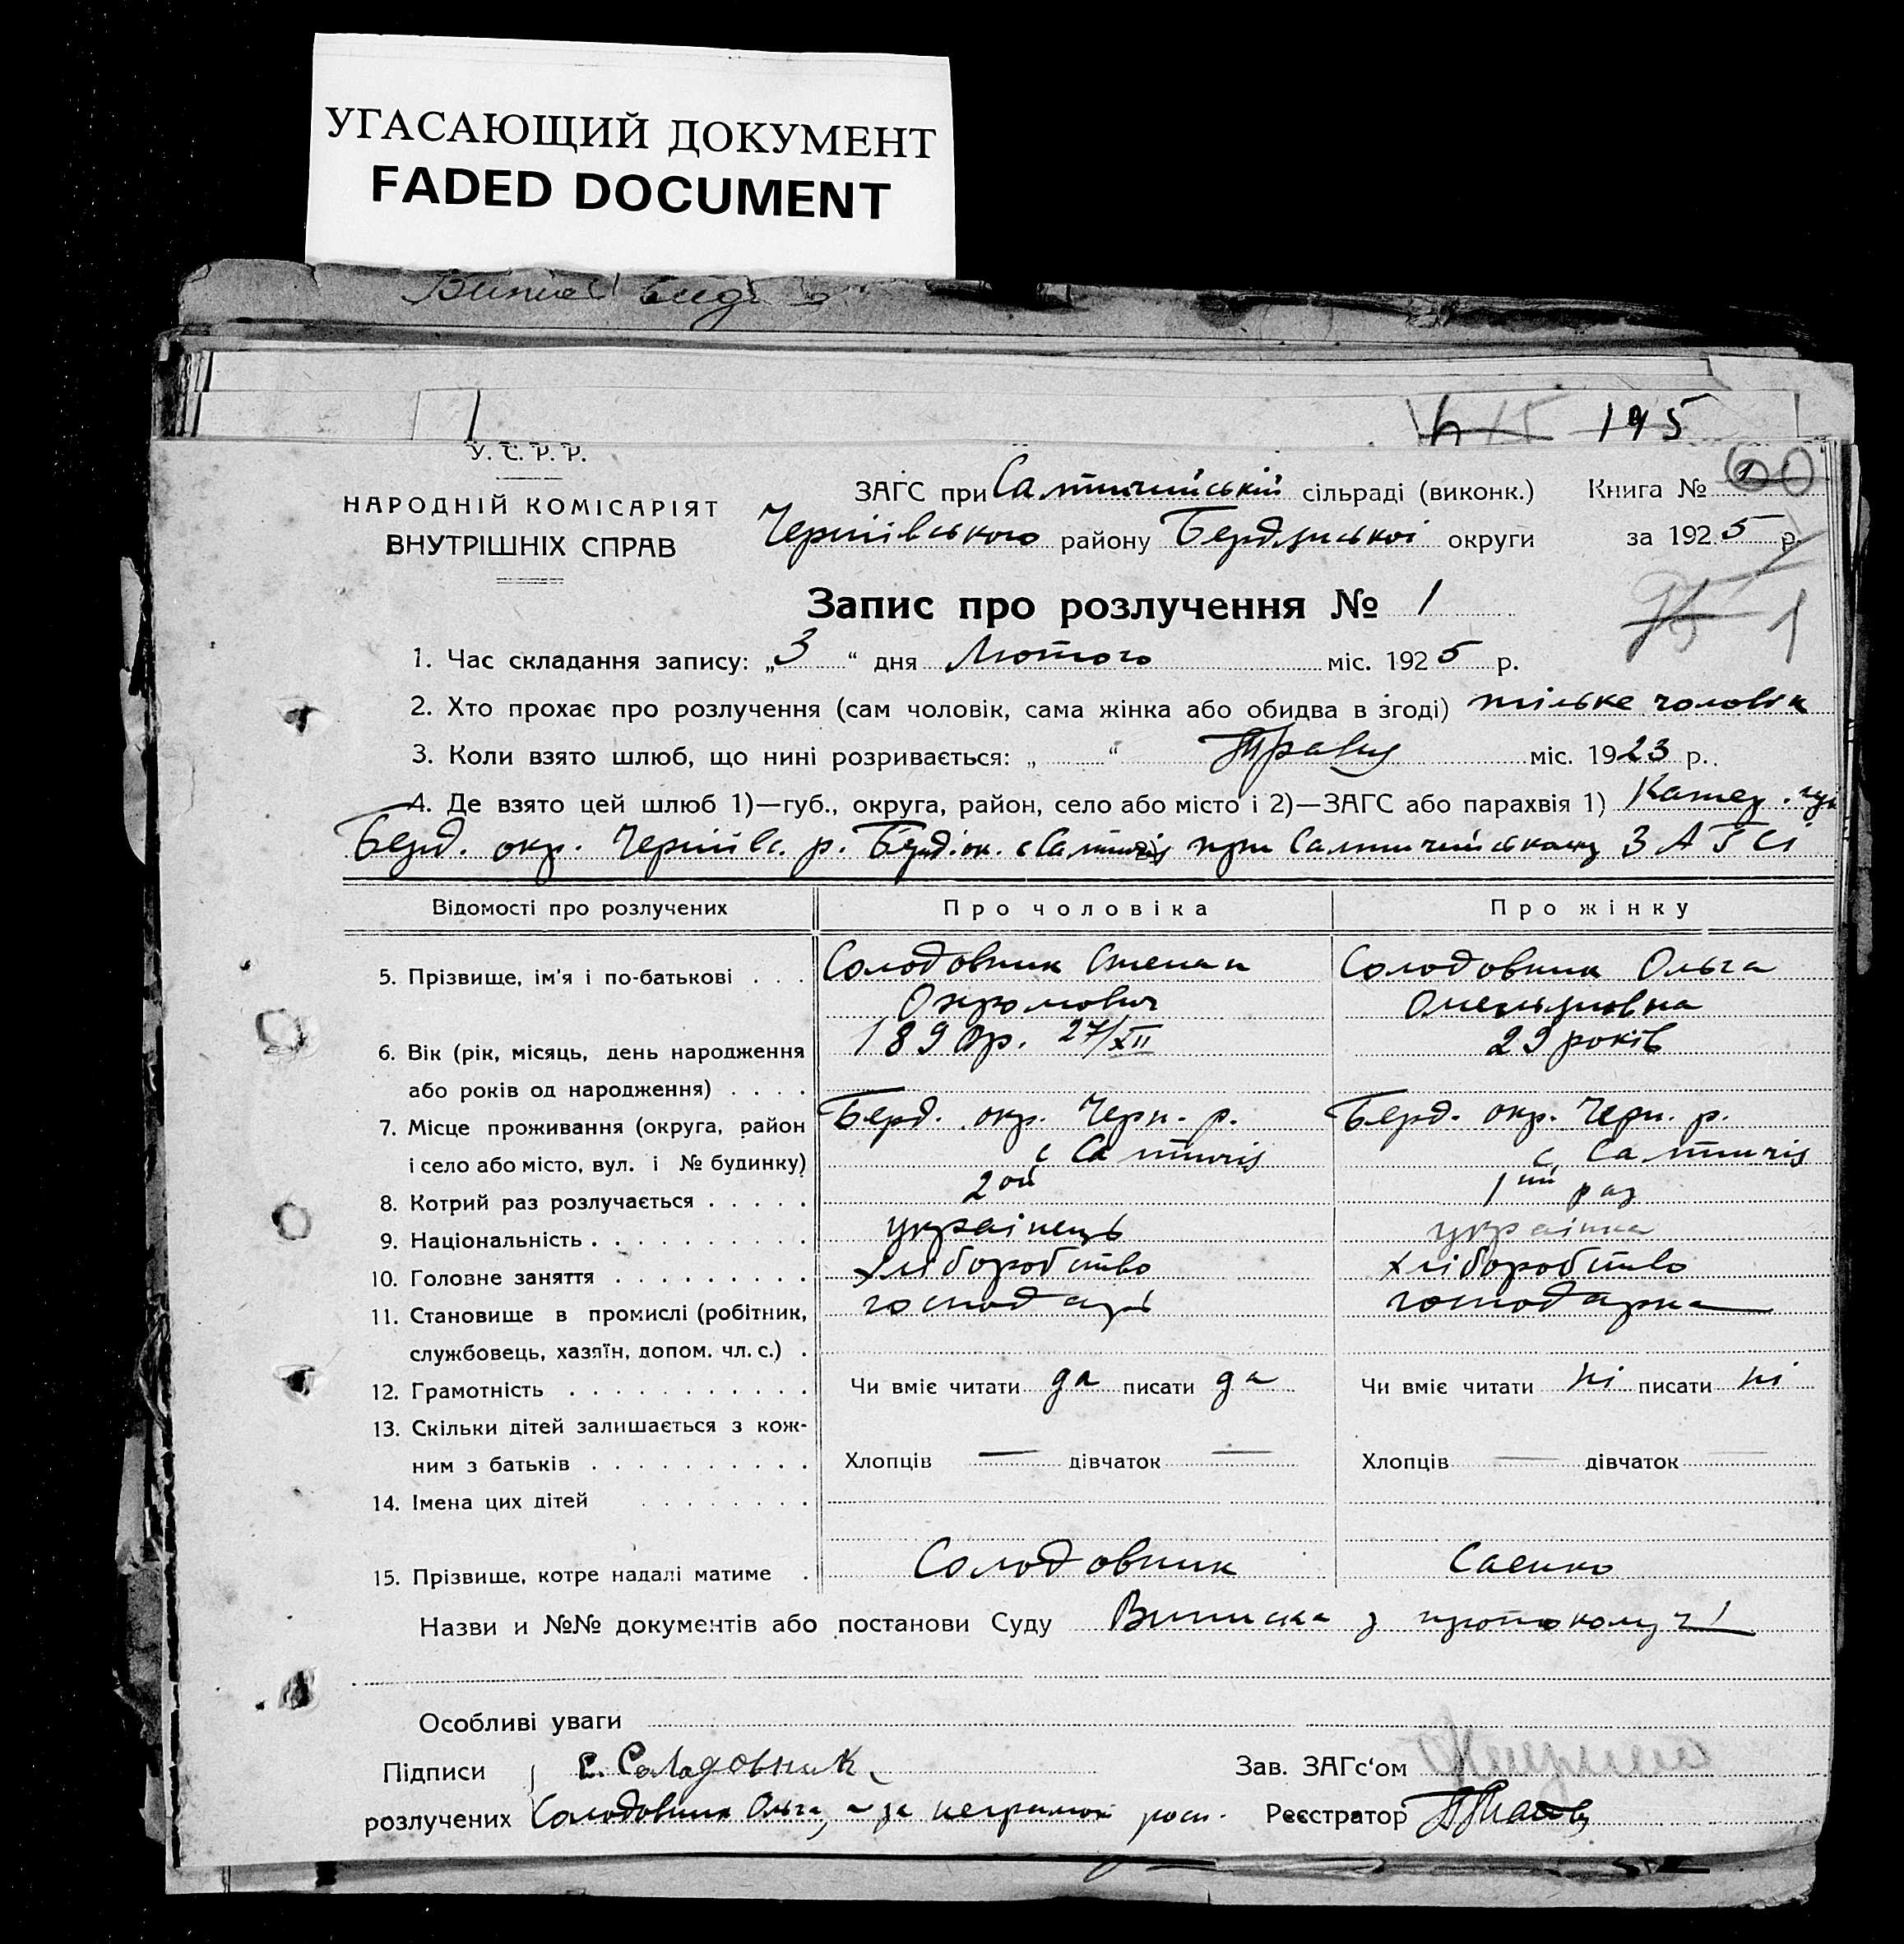 УГАСАЮЩИЙ ДОКУМЕНТ
FADED DOCUMENT
195
У. С. Р. Р.
НАРОДНІЙ КОМІСАРІЯТ
ВНУТРІШНІХ СПРАВ
ЗАГС при Салтичийській сільраді (виконк.) Книга № 1
Чернівського району Бердянської округи за 1925 р.
Запис про розлучення № 1
1. Час складання запису: „3“ дня Лютого міс. 1925 р.
2. Хто прохає про розлучення (сам чоловік, сама жінка або обидва в згоді) тільке чоловік
3. Коли взято шлюб, що нині розривається: „ “ Травня міс. 1923 р.
4. Де взято цей шлюб 1)—губ., округа, район, село або місто і 2)—ЗАГС або парахвія 1) Катер.
Берд. окр. р. с Салтичія при Салтичийському ЗАГСі
Відомості про розлучених Про чоловіка Про жінку
5. Прізвище, ім'я і по-батькові . . . Солодовник Степан Солодовник Ольга
6. Вік (рік, місяць, день народження 1890р. 27/XII 29 років
або років од народження) . . . .
7. Місце проживання (округа, район Берд. окр. Черн. р. Берд. окр. Черн. р.
і село або місто, вул. і № будинку) с Салтичія с Салтичія
8. Котрий раз розлучається . . . . . 2ой 1ий раз
9. Національність . . . . . . . . . . українець українка
10. Головне заняття . . . . . . . . . хліборобство хліборобство
11. Становище в промислі (робітник, господарь господарка
службовець, хазяїн, допом. чл. с.) .
12. Грамотність . . . . . . . . . . . Чи вміє читати да писати да Чи вміє читати ні писати ні
13. Скільки дітей залишається з кож-
ним з батьків . . . . . . . . . . Хлопців — дівчаток — Хлопців — дівчаток —
14. Імена цих дітей . . . . . . . .
15. Прізвище, котре надалі матиме . Солодовник Саенко
Назви и №№ документів або постанови Суду Виписка з протоколу ч 1
Особливі уваги
Підписи С. Соладовник Зав. ЗАГс'ом
розлучених Солодовник Ольга, а за неграмот росп. Реєстратор